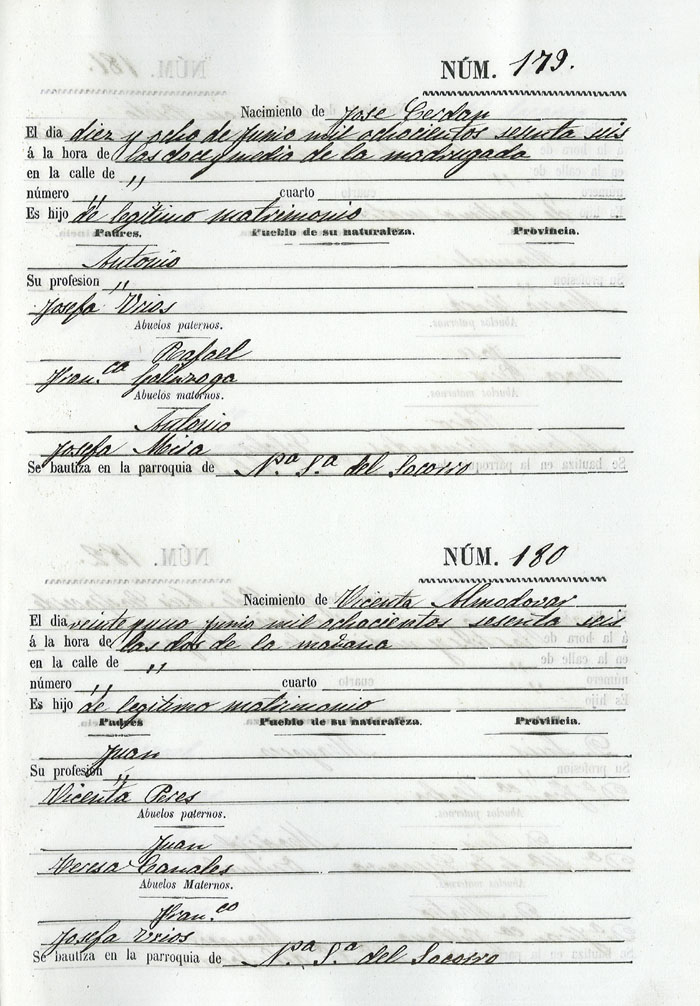 NÚM. 179.
Nacimiento de Jose Cerdan
El dia diez y ocho de Junio mil ochocientos sesenta seis
á la hora de las doce y media de la madrugada
en la calle de ,,
número ,, cuarto
Es hijo de legitimo matrimonio
Padres. Pueblo de su naturaleza. Provincia.
Antonio
Su profesion ,,
Josefa Vrios
Abuelos paternos.
Rafael
Fran.ca Galinzoga
Abuelos maternos.
Antonio
Josefa Meira
Se bautiza en la parroquia de N.a S.a del Socorro
NÚM. 180
Nacimiento de Vicenta Almodovar
El dia veinte y uno Junio mil ochocientos sesenta seis
á la hora de las dos de la mañana
en la calle de ,,
número ,, cuarto
Es hijo de legitimo matrimonio
Padres Pueblo de su naturaleza. Provincia.
Juan
Su profesión ,,
Vicenta Peres
Abuelos paternos.
Juan
Teresa Canales
Abuelos Maternos.
Fran.co
Josefa Vrios
Se bautiza en la parroquia de N.a S.a del Socorro